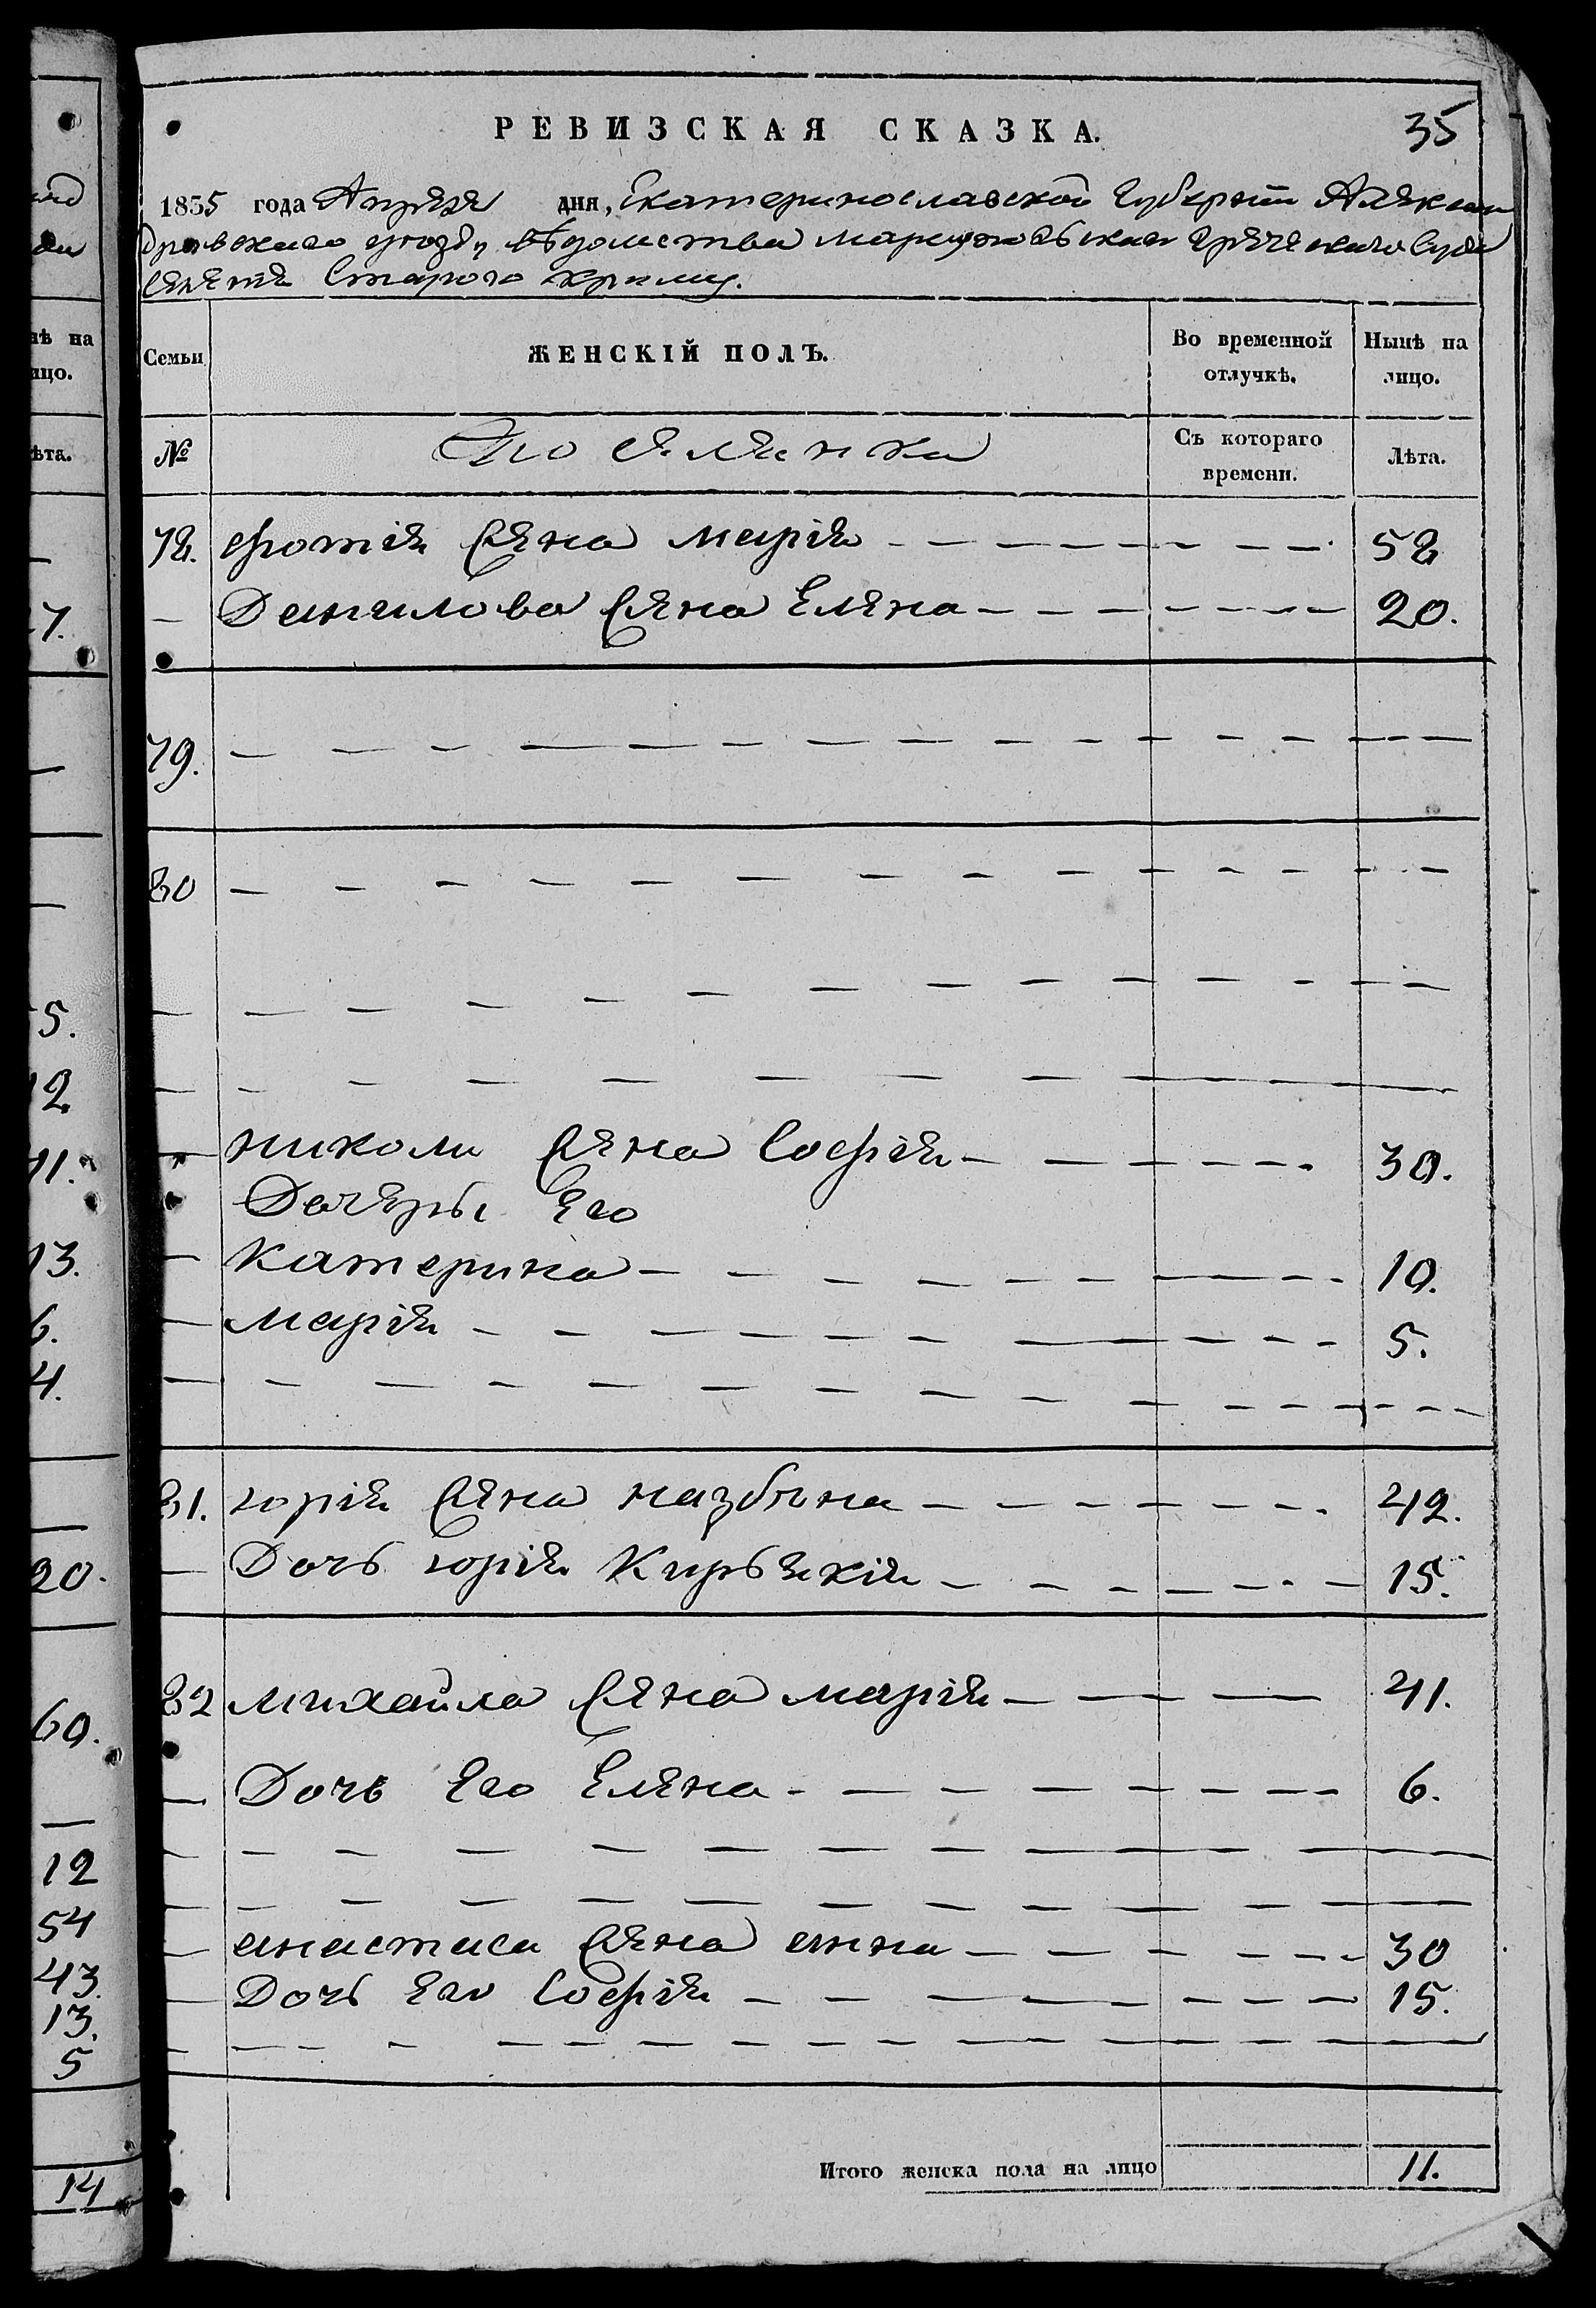 РЕВИЗСКАЯ СКАЗКА.
35
1835 года Апреля дня, Екатеринославской Губернии Алексан
дровскаго уезду ведомства мариупольскаго греческаго суда
селения Старого крыму.
Семьи
ЖЕНСКІЙ ПОЛЪ.
Во временной отлучкѣ.
Нынѣ на лицо.
№
Поселянка
Съ котораго времени.
Лѣта.
78. Фотія жена марія — — — 52
— Данилова жена Елена — — — 20.
79. — — —
80 — — —
— — — —
— — — —
— николи жена Софія — — — 30.
Дочеры Его
— Катерина — — — 10.
— марія — — — 5.
— — — —
81. юрія жена назбына — — — 42.
— Дочь юрія Кирьякія — — — 15.
82 михайла жена марія — — — 41.
— Дочь Его Елена — — — 6.
— — — —
— — — —
— анастаса жена анна — — — 30
— Дочь Его Софія — — — 15.
— — — —
Итого женска пола на лицо 11.
нѣ на
ицо.
ѣта.
7.
5.
12
11.
13.
6.
4.
20.
60.
12
54
43.
13.
5
14